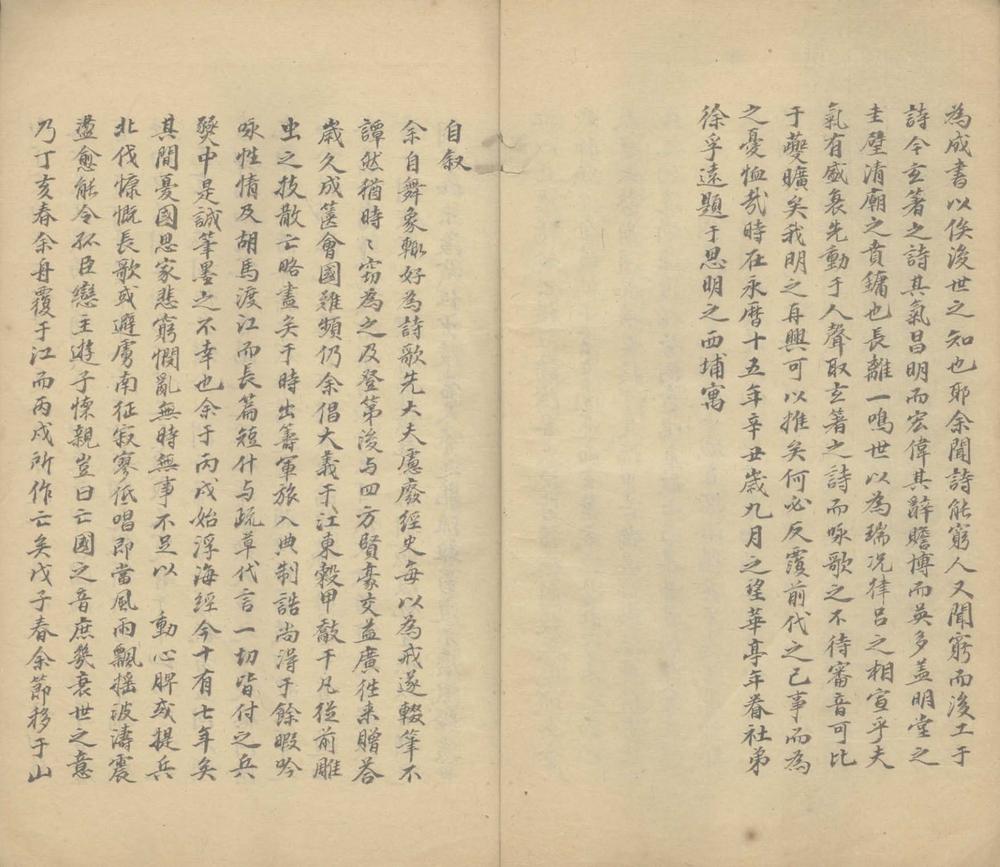 為成書以俟後世之知也耶余聞詩能窮人又聞窮而後工于
詩今玄著之詩其氣昌明而宏偉其辭贍博而英多盖明堂之
圭璧清廟之賁鏞也長離一鳴世以為瑞况律呂之相宣乎夫
氣有盛衰先動于人聲取玄著之詩而咏歌之不待審音可比
于夔曠矣我明之再興可以推矣何必反覆前代之已事而為
之憂恤哉時在永曆十五年辛丑歲九月之望華亭年眷社弟
徐孚遠題于思明之西埔寓
自叙
余自舞象輙好為詩歌先大夫慮廢經史每以為戒遂輟筆不
譚然猶時〻窃為之及登第後与四方賢豪交益廣徃来贈答
歲久成篋會國難頻仍余倡大義于江東敹甲敿干凡從前雕
虫之技散亡略盡矣于時出籌軍旅入典制誥尚淂于餘暇吟
咏性情及胡馬渡江而長篇短什与疏草代言一切皆付之兵
燹中是誠筆墨之不幸也余于丙戌始浮海經今十有七年矣
其間憂國思家悲窮憫亂無時無事不足以 動心脾或提兵
北伐慷慨長歌或避虜南征寂寥低唱即當風雨飄摇波濤震
盪愈能令孤臣戀主遊子懷親豈曰亡國之音庶㡬衰世之意
乃丁亥春余舟覆于江而丙戌所作亡矣戊子春余節移于山